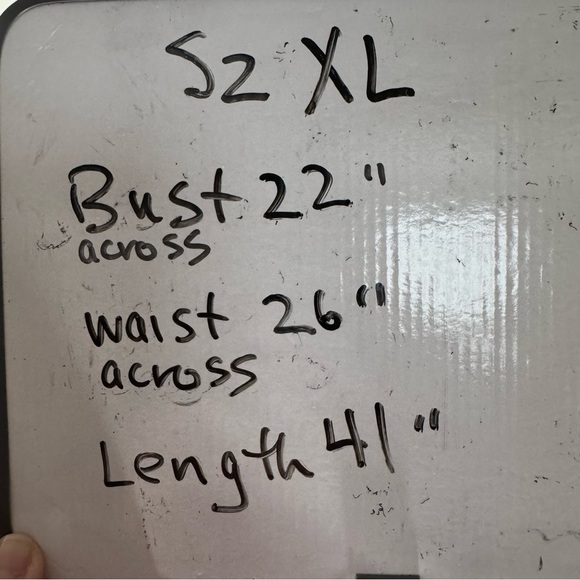 Sz XL
Bust 22"
across
waist 26"
across
Length 41"